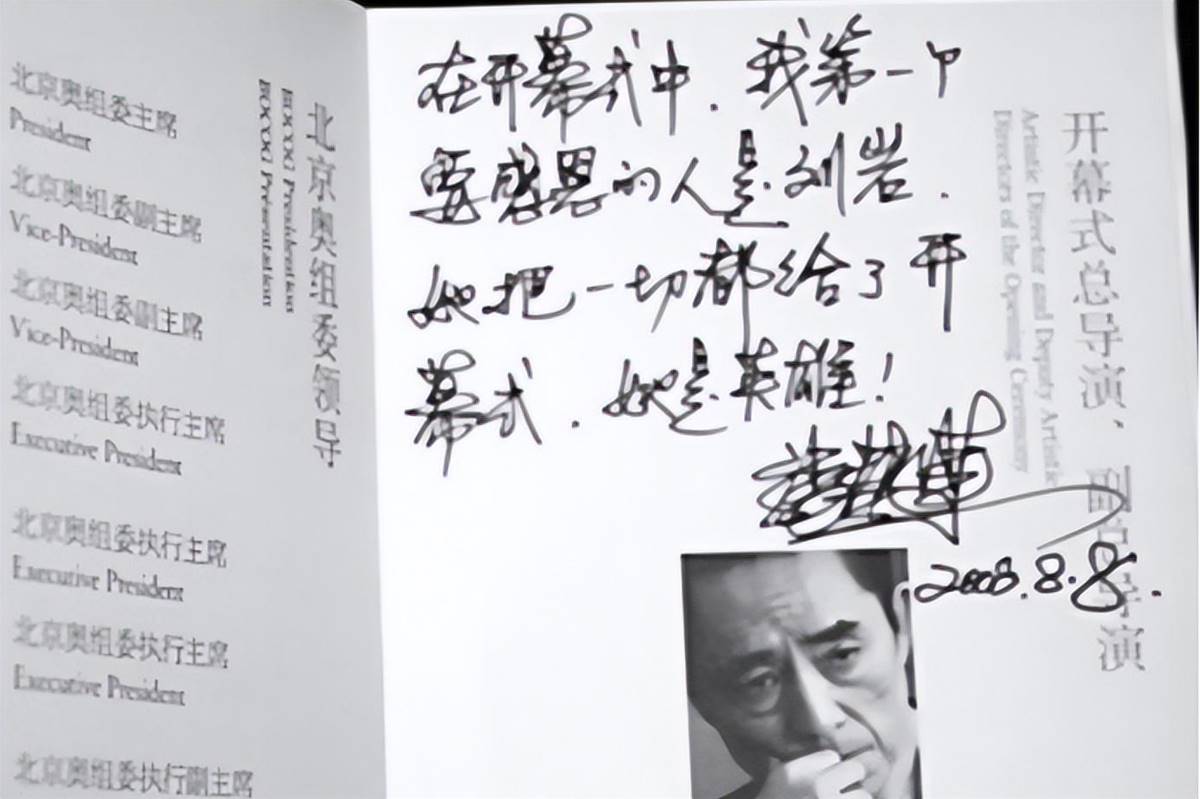 北京奥组委主席
President
北京奥组委副主席
Vice-President
北京奥组委副主席
Vice-President
北京奥组委执行主席
Executive President
北京奥组委执行主席
Executive President
北京奥组委执行主席
Executive President
北京奥组委执行副主席
北京奥组委领导
BOCOG
BOCOG
在开幕式中.我第一个
要感恩的人是刘岩.
她把一切都给了开
幕式.她是英雄!
2008.8.8.
开幕式总导演、副总导演
Artistic Director and Deputy Artistic
Directors of the Opening Ceremony